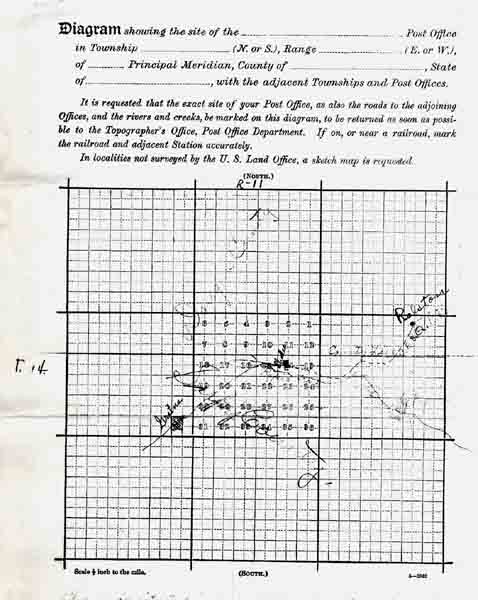 Diagram showing the site of the Post Office
in Township (N. or S.), Range (E. or W.),
of Principal Meridian, County of , State
of , with the adjacent Townships and Post Offices.
It is requested that the exact site of your Post Office, as also the roads to the adjoining
Offices, and the rivers and creeks, be marked on this diagram, to be returned as soon as possi-
ble to the Topographer's Office, Post Office Department. If on, or near a railroad, mark
the railroad and adjacent Station accurately.
In localities not surveyed by the U. S. Land Office, a sketch map is requested.
(NORTH.)
R-11
Ralston
6 5 4 3 2 1
7 8 9 10 11 12
18 17 13
T. 14
19 20 21 22 23 24
31 32 33 34 35 36
Scale ½ inch to the mile.
(SOUTH.)